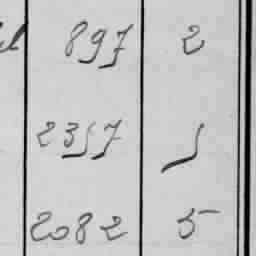 897 2
2357 1
2082 5